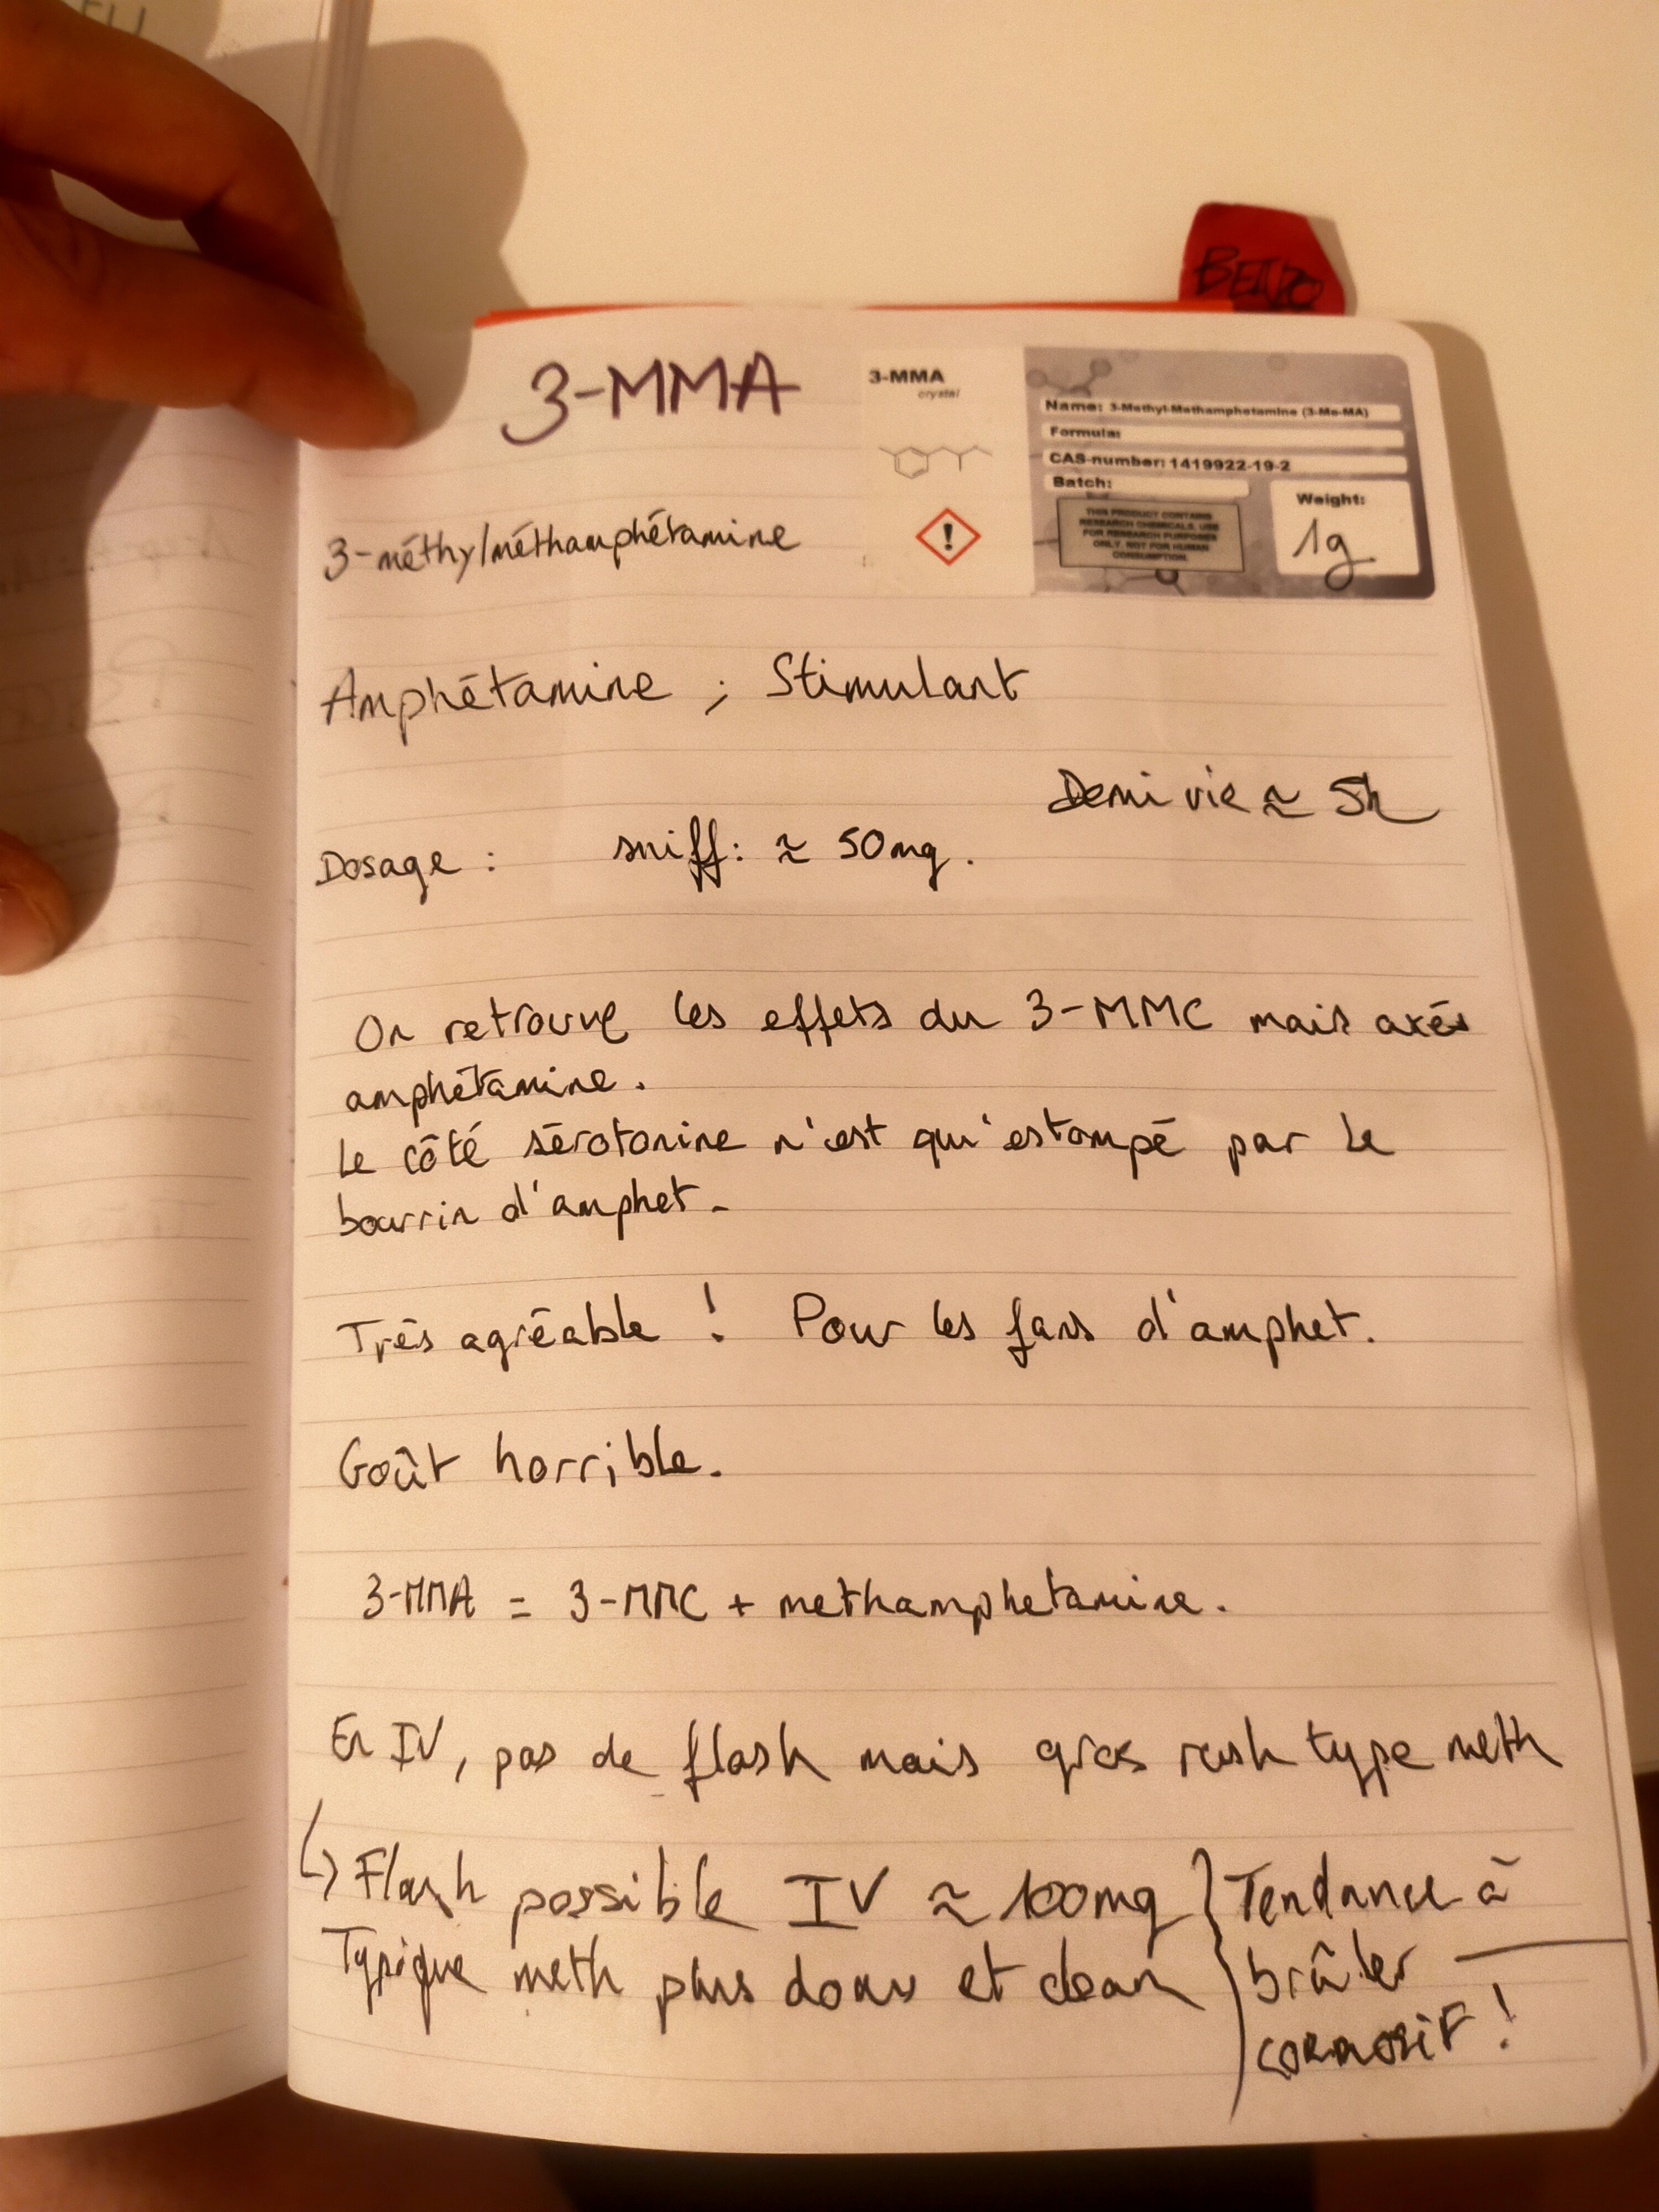 BENZO
3-MMA
3-MMA
crystal
Name: 3-Methyl-Methamphetamine (3-Me-MA)
Formula:
CAS-number: 1419922-19-2
Batch:
THIS PRODUCT CONTAINS
RESEARCH CHEMICALS. USE
FOR RESEARCH PURPOSES
ONLY. NOT FOR HUMAN
CONSUMPTION.
Weight:
1g
3-méthylméthamphétamine
Amphétamine ; Stimulant
Demi vie ≈ 5h
Dosage : sniff: ≈ 50mg.
On retrouve les effets du 3-MMC mais axés
amphétamine.
Le côté sérotonine n'est qu'estompé par le
bourrin d'amphet.
Très agréable ! Pour les fans d'amphet.
Goût horrible.
3-MMA = 3-MMC + methamphetamine.
En IV, pas de flash mais gros rush type meth
↳ Flash possible IV ≈ 100mg } Tendance à
Typique meth plus doux et clean brûler
corrosif !